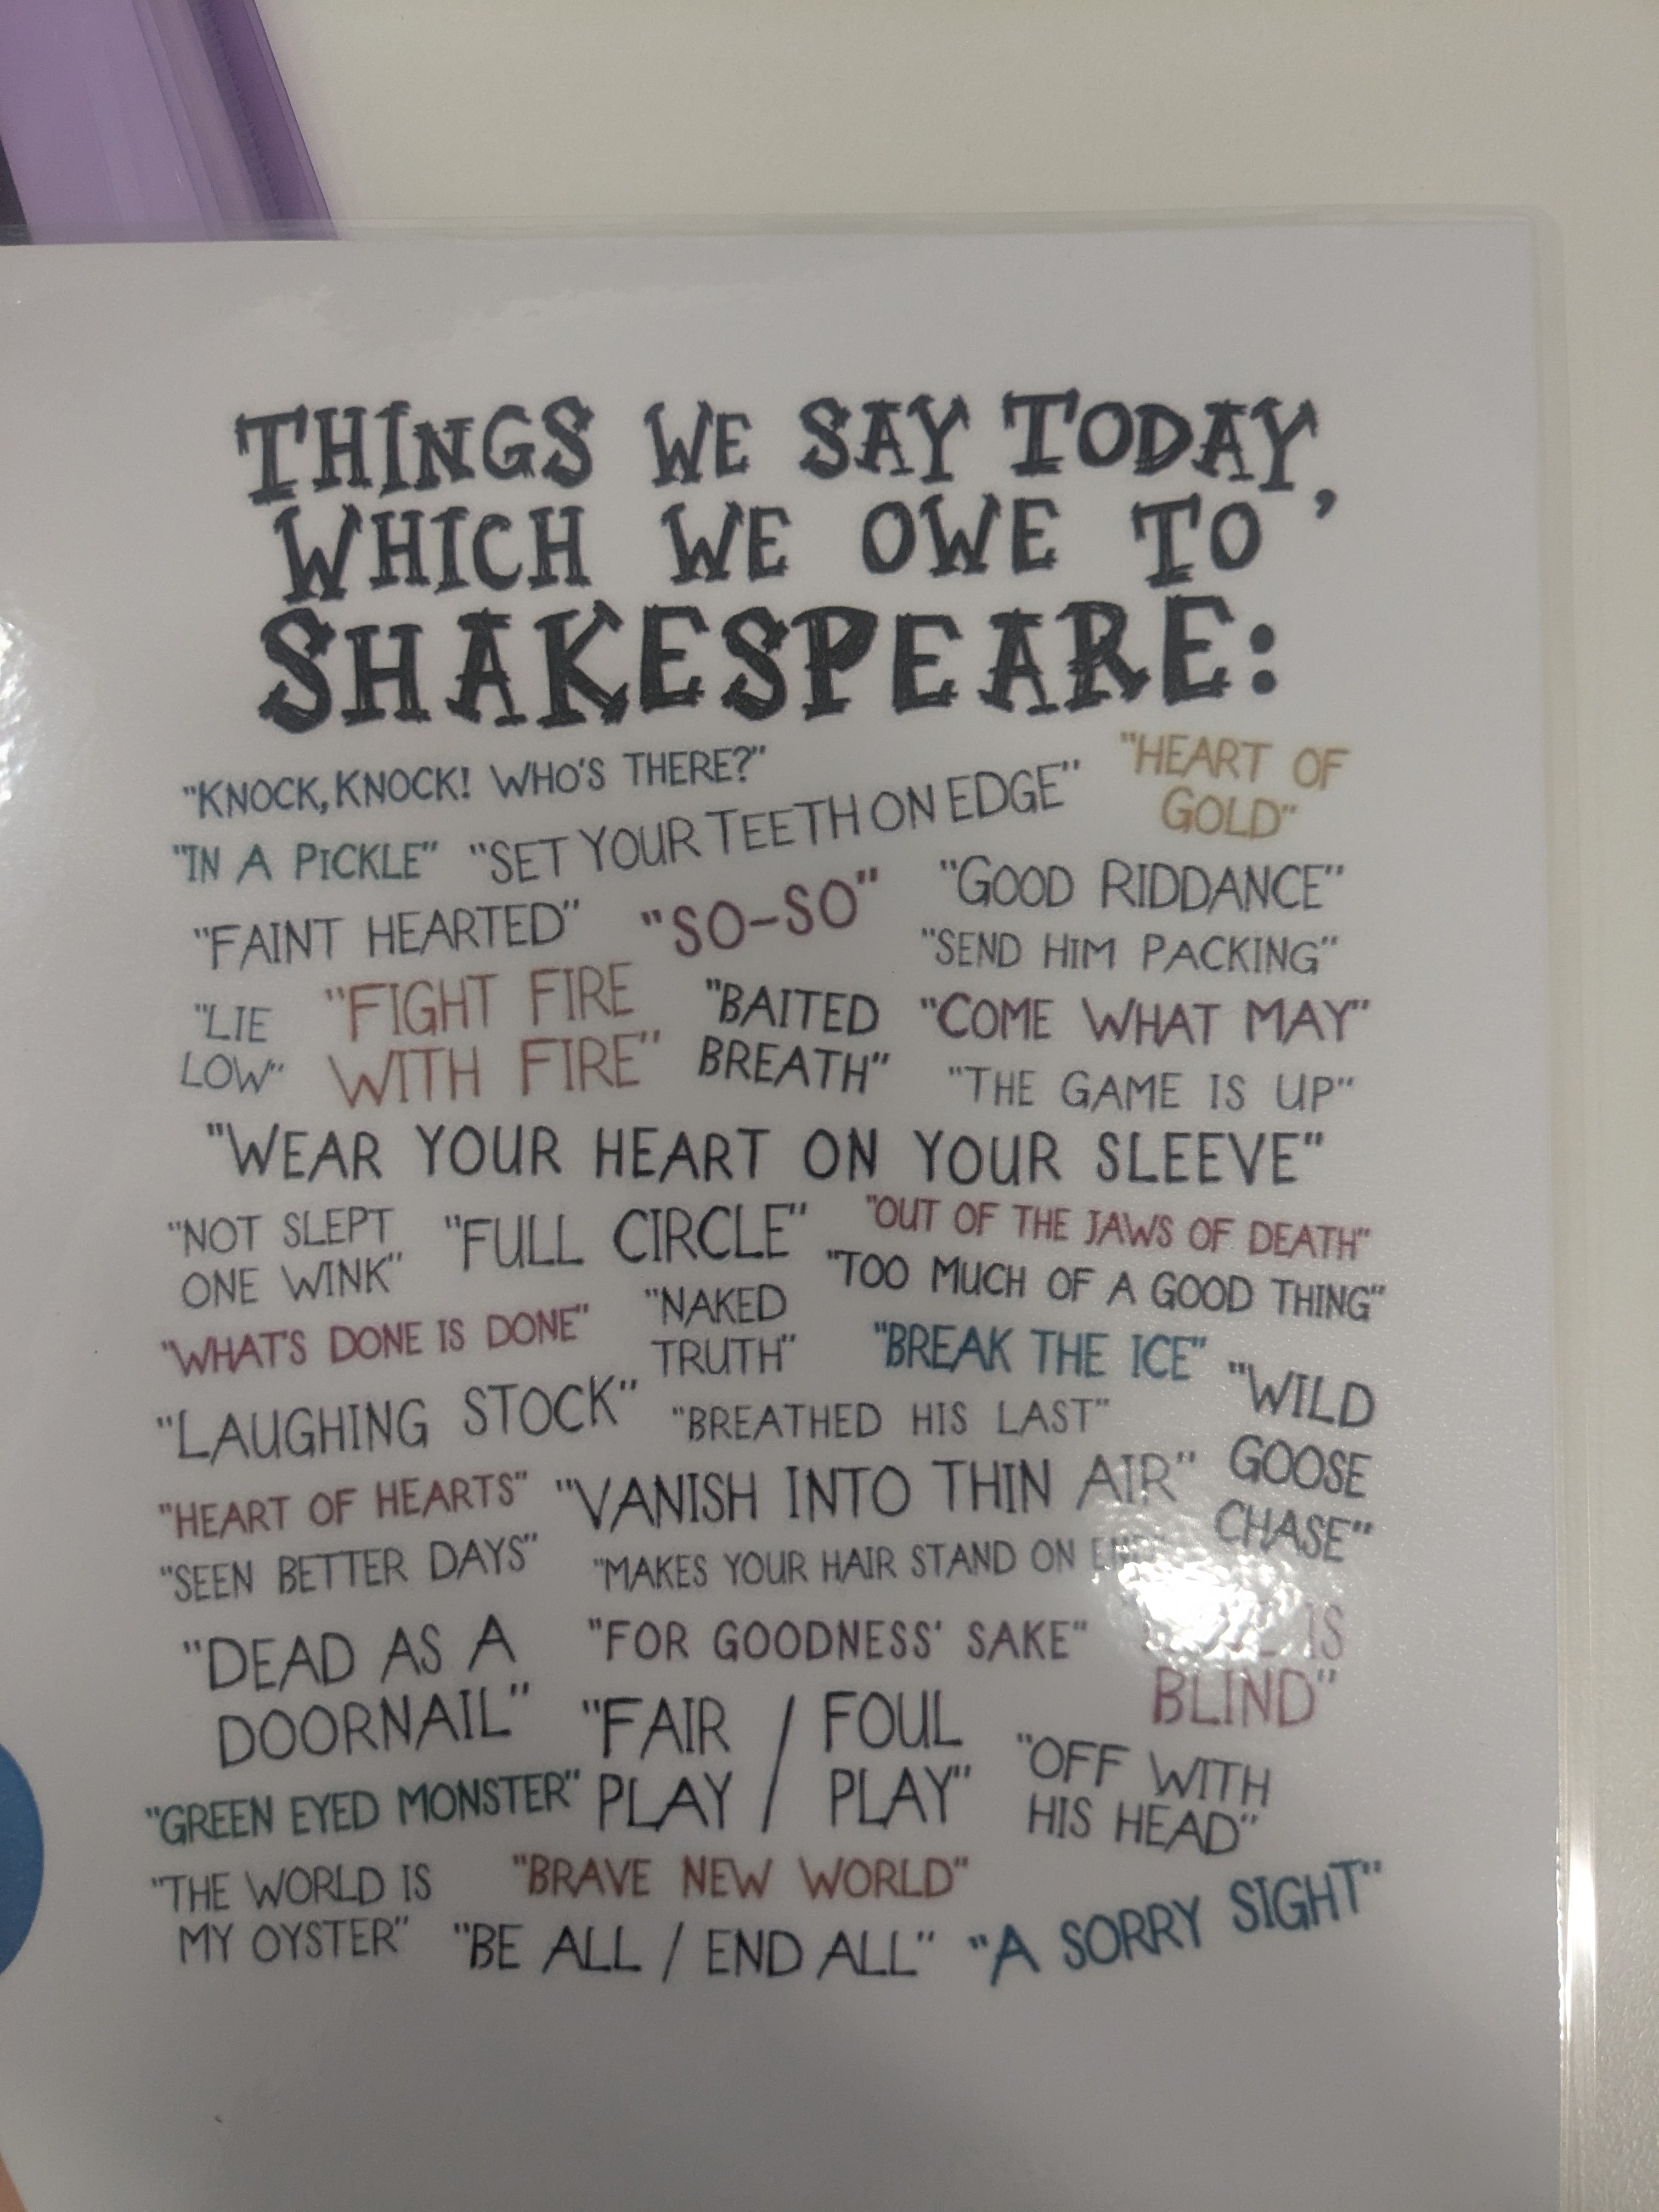 THINGS WE SAY TODAY,
WHICH WE OWE TO
SHAKESPEARE:
"KNOCK, KNOCK! WHO'S THERE?"
"HEART OF
GOLD"
"IN A PICKLE"
"SET YOUR TEETH ON EDGE"
"FAINT HEARTED"
"SO-SO"
"GOOD RIDDANCE"
"SEND HIM PACKING"
"LIE
LOW"
"FIGHT FIRE
WITH FIRE"
"BAITED
BREATH"
"COME WHAT MAY"
"THE GAME IS UP"
"WEAR YOUR HEART ON YOUR SLEEVE"
"NOT SLEPT
ONE WINK"
"FULL CIRCLE"
"OUT OF THE JAWS OF DEATH"
"TOO MUCH OF A GOOD THING"
"WHAT'S DONE IS DONE"
"NAKED
TRUTH"
"BREAK THE ICE"
"WILD
GOOSE
CHASE"
"LAUGHING STOCK"
"BREATHED HIS LAST"
"HEART OF HEARTS"
"VANISH INTO THIN AIR"
"SEEN BETTER DAYS"
"MAKES YOUR HAIR STAND ON
"DEAD AS A
DOORNAIL"
"FOR GOODNESS' SAKE"
IS
BLIND"
"FAIR
PLAY
/
FOUL
PLAY"
"OFF WITH
HIS HEAD"
"GREEN EYED MONSTER"
"THE WORLD IS
MY OYSTER"
"BRAVE NEW WORLD"
"BE ALL / END ALL"
"A SORRY SIGHT"